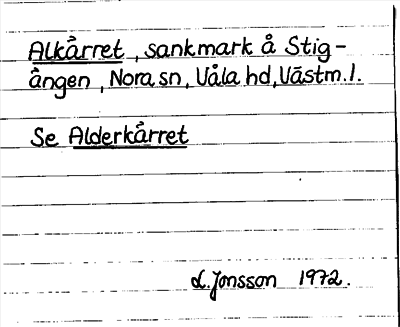 Alkärret , sankmark å Stig-
ängen , Nora sn, Våla hd, Västm. l.
Se Alderkärret
L. Jonsson 1972.